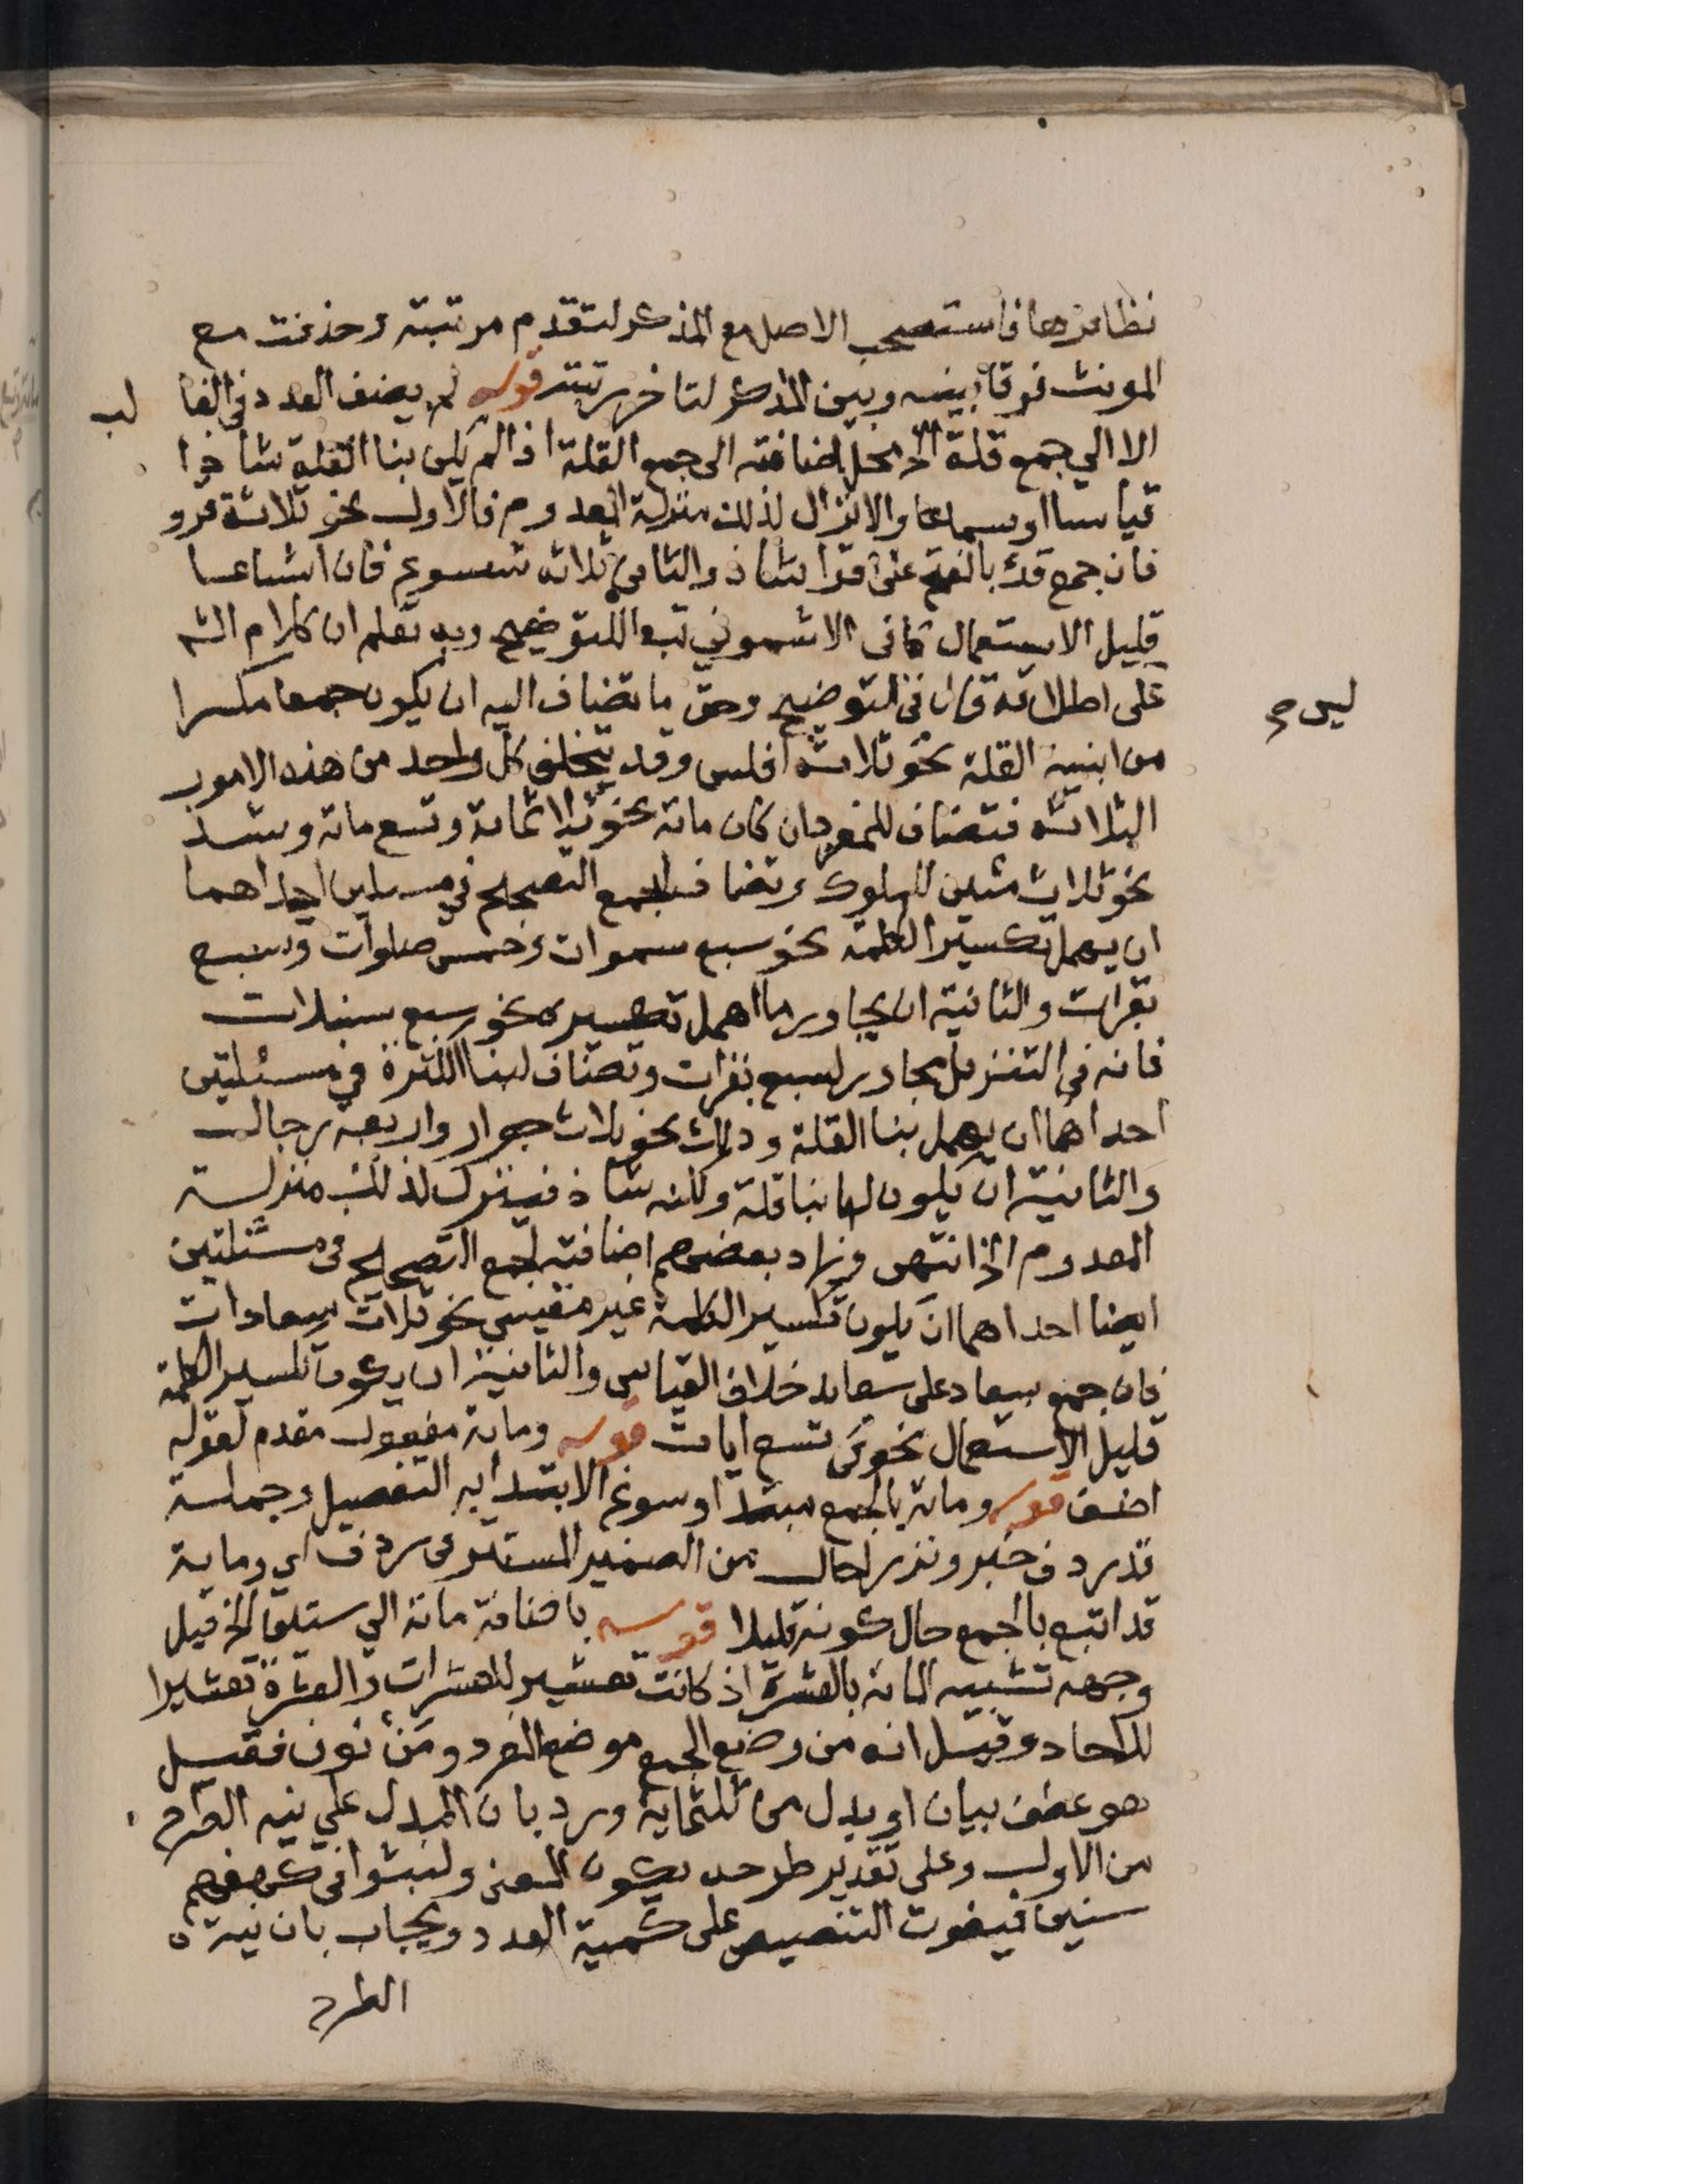 نظائرها فاستصحب الاصل مع المذكر لتقدم مرتبته وحذفت مع
المونث فرقا بينه وبين المذكر لتاخر رتبته قوله لم يضف العدد في الغا لب
الا الى جمع قلة الخ محل اضافته الى جمع القلة اذا لم يكن بنا القلة شاذا
قياسا او سماعا والا نزل لذلك منزلة المعدوم فالاول نحو ثلاثة قرو
فان جمع قرء بالفتح على اقرا شاذ والثاني ثلاثة شسوع فان اشساعا
قليل الاستعمال كما في الاشموني تبعا للتوضيح وبه تعلم ان كلام الش
ليس ح
على اطلاقه قال في التوضيح وحق ما تضاف اليه ان يكون جمعا مكسرا
من ابنية القلة نحو ثلاثة افلس وقد يتخلف كل واحد من هذه الامور
الثلاثة فتضاف للمفرد ان كان مائة نحو ثلاثمائة وتسع مائة وشذ
نحو ثلاث مئين للملوك وتضاف لجمع التصحيح في مسئلتين احداهما
ان يهمل تكسير الكلمة نحو سبع سموات وخمس صلوات وسبع
بقرات والثانية ان يجاور ما اهمل تكسيره نحو سبع سنبلات
فانه في التنزيل مجاور لسبع بقرات وتضاف لبنا الكثرة في مسئلتين
احداهما ان يهمل بنا القلة وذلك نحو ثلاث جوار واربعة رجال
والثانية ان يكون لها بنا قلة ولكنه شاذ فينزل لذلك منزلة
المعدوم الخ انتهى وزاد بعضهم اضافته لجمع التصحيح في مسئلتين
ايضا احداهما ان يكون تكسير الكلمة غير مقيس نحو ثلاث سعادات
فان جمع سعاد على سعائد خلاف القياس والثانية ان يكون تكسير الكلمة
قليل الاستعمال نحو في تسع ايات قوله ومائة مفعول مقدم لقوله
اضف قوله ومائة بالجمع مبتدا وسوغ الابتدا به التفصيل وجملة
قد ردف خبر ونزرا حال من الضمير المستتر في ردف اي ومائة
قد اتبع بالجمع حال كونه قليلا قوله باضافة مائة الى سنين الخ قيل
وجهه تشبيه المائة بالعشرة اذ كانت تعشيرا للعشرات والعشرة تعشيرا
للاحاد وقيل انه من وضع الجمع موضع المفرد ومن نون فقيل
هو عطف بيان او بدل من ثلثماية ورد بان المبدل على نية الطرح
من الاول وعلى تقدير طرحه يكون المعنى ولبثوا في كهفهم
سنين فيفوت التنصيص على كمية العدد ويجاب بان نية
الطرح